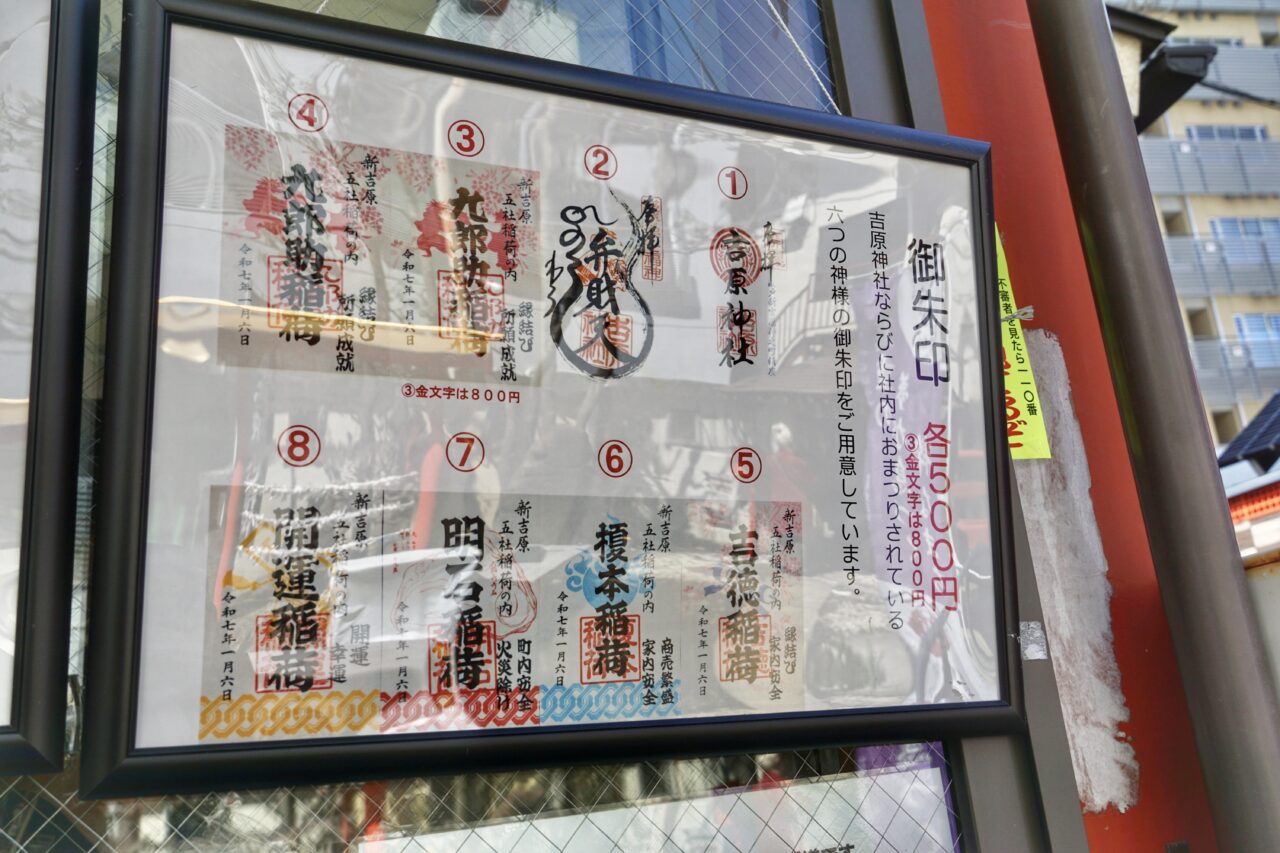 御朱印 各500円
③金文字は800円
吉原神社ならびに社内におまつりされている
六つの神様の御朱印をご用意しています。
①
奉拝
吉原神社
②
奉拝
弁財天
③
新吉原
五社稲荷の内
縁結び
所願成就
九郎助稲荷
令和七年一月六日
③金文字は800円
④
新吉原
五社稲荷の内
縁結び
所願成就
九郎助稲荷
令和七年一月六日
⑤
新吉原
五社稲荷の内
縁結び
家内安全
吉徳稲荷
令和七年一月六日
⑥
新吉原
五社稲荷の内
商売繁盛
家内安全
榎本稲荷
令和七年一月六日
⑦
新吉原
五社稲荷の内
町内安全
火災除け
明石稲荷
令和七年一月六日
⑧
新吉原
五社稲荷の内
開運
幸運
開運稲荷
令和七年一月六日
不審者を見たら一一〇番